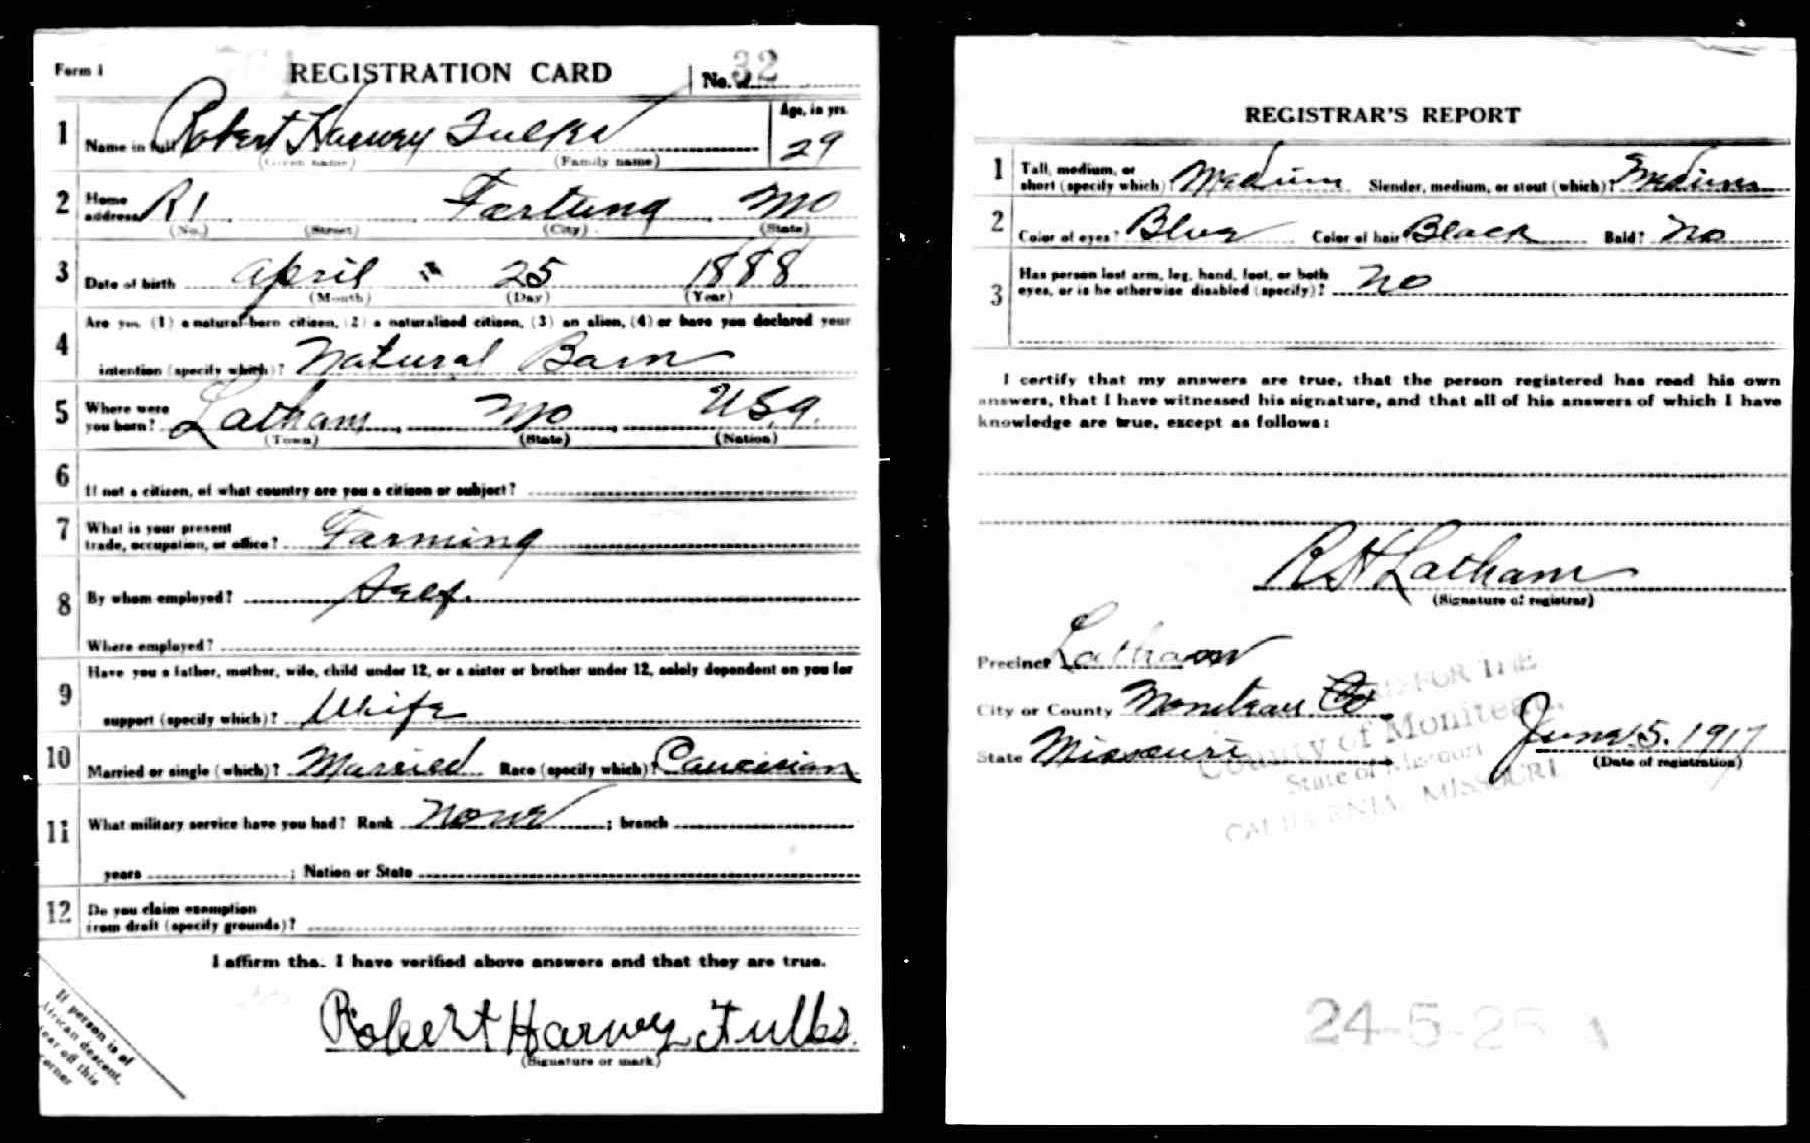 Form 1 REGISTRATION CARD No. 32
1 Name in full Robert Harvey Fulks Age, in yrs. 29
(Given name) (Family name)
2 Home address R1 Fortuna Mo
(No.) (Street) (City) (State)
3 Date of birth April 25 1888
(Month) (Day) (Year)
4 Are you (1) a natural-born citizen, (2) a naturalized citizen, (3) an alien, (4) or have you declared your
intention (specify which)? Natural Born
5 Where were you born? Latham Mo USA.
(Town) (State) (Nation)
6 If not a citizen, of what country are you a citizen or subject?
7 What is your present
trade, occupation, or office? Farming
8 By whom employed? Self.
Where employed?
9 Have you a father, mother, wife, child under 12, or a sister or brother under 12, solely dependent on you for
support (specify which)? Wife
10 Married or single (which)? Married Race (specify which)? Caucasian
11 What military service have you had? Rank None ; branch
years ; Nation or State
12 Do you claim exemption
from draft (specify grounds)?
I affirm tha. I have verified above answers and that they are true.
Robert Harvey Fulks.
(Signature or mark)
If person is of
African descent,
tear off this
corner
REGISTRAR'S REPORT
1 Tall, medium, or
short (specify which)? Medium Slender, medium, or stout (which)? Medium
2 Color of eyes? Blue Color of hair? Black Bald? No
3 Has person lost arm, leg, hand, foot, or both
eyes, or is he otherwise disabled (specify)? No
I certify that my answers are true, that the person registered has read his own
answers, that I have witnessed his signature, and that all of his answers of which I have
knowledge are true, except as follows:
R H Latham
(Signature of registrar)
Precinct Latham
City or County Moniteau Co
State Missouri
June 5. 1917
(Date of registration)
FOR THE
County of Moniteau.
State of Missouri
CALIFORNIA, MISSOURI
24-5-25 A